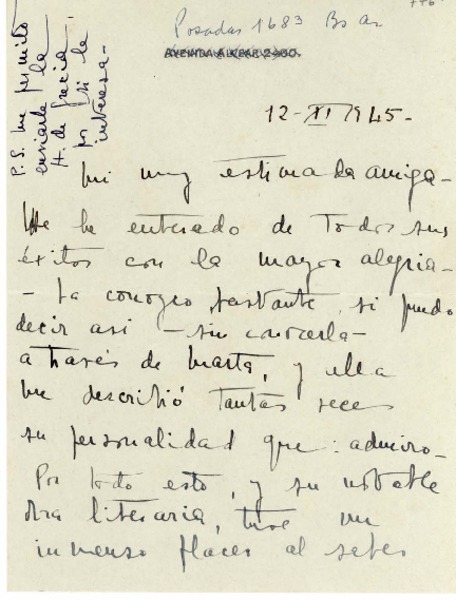 Posadas 1683 Bs As
AVENIDA ALVEAR 2480.
12-XI 1945-
P.S. me permito
enviarle la
H. de Grecia
por si le
interesa-
Mi muy estimada amiga-
Me he enterado de todos sus
éxitos con la mayor alegria-
- La conozco bastante, si puedo
decir asi - sin conocerla-
a través de Marta, y ella
me describió tantas veces
su personalidad que admiro-
Por todo esto, y su notable
obra literaria, tuve un
inmenso placer al saber